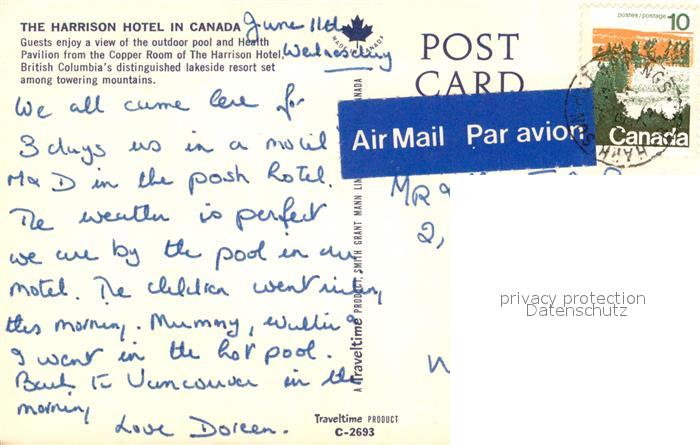 THE HARRISON HOTEL IN CANADA
Guests enjoy a view of the outdoor pool and Health
Pavilion from the Copper Room of The Harrison Hotel,
British Columbia's distinguished lakeside resort set
among towering mountains.
June 11th
Wednesday
We all came here for
3 days us in a motel
M & D in the posh hotel.
The weather is perfect
we are by the pool in our
motel. The children went riding
this morning. Mummy, &
I went in the hot pool.
Back to Vancouver in the
morning
Love Doreen.
MADE IN CANADA
POST
CARD
Air Mail Par avion
postes/postage 10
Canada
MR &
2,
A Traveltime PRODUCT, SMITH GRANT MANN CANADA
Traveltime PRODUCT
C-2693
privacy protection
Datenschutz